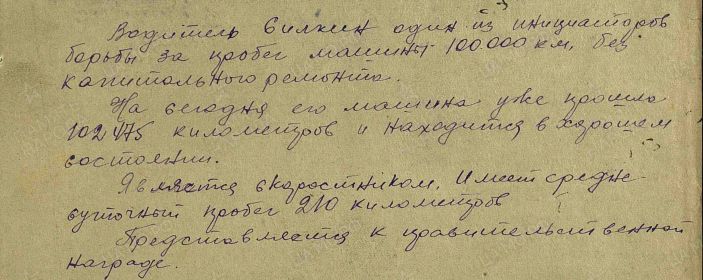 Водитель Вилкин один из инициаторов
борьбы за пробег машины 100000 км, без
капитального ремонта.
На сегодня его машина уже прошла
102475 километров и находится в хорошем
состоянии.
Является скоростником. Имеет средне-
суточный пробег 210 километров
Представляется к правительственной
награде.